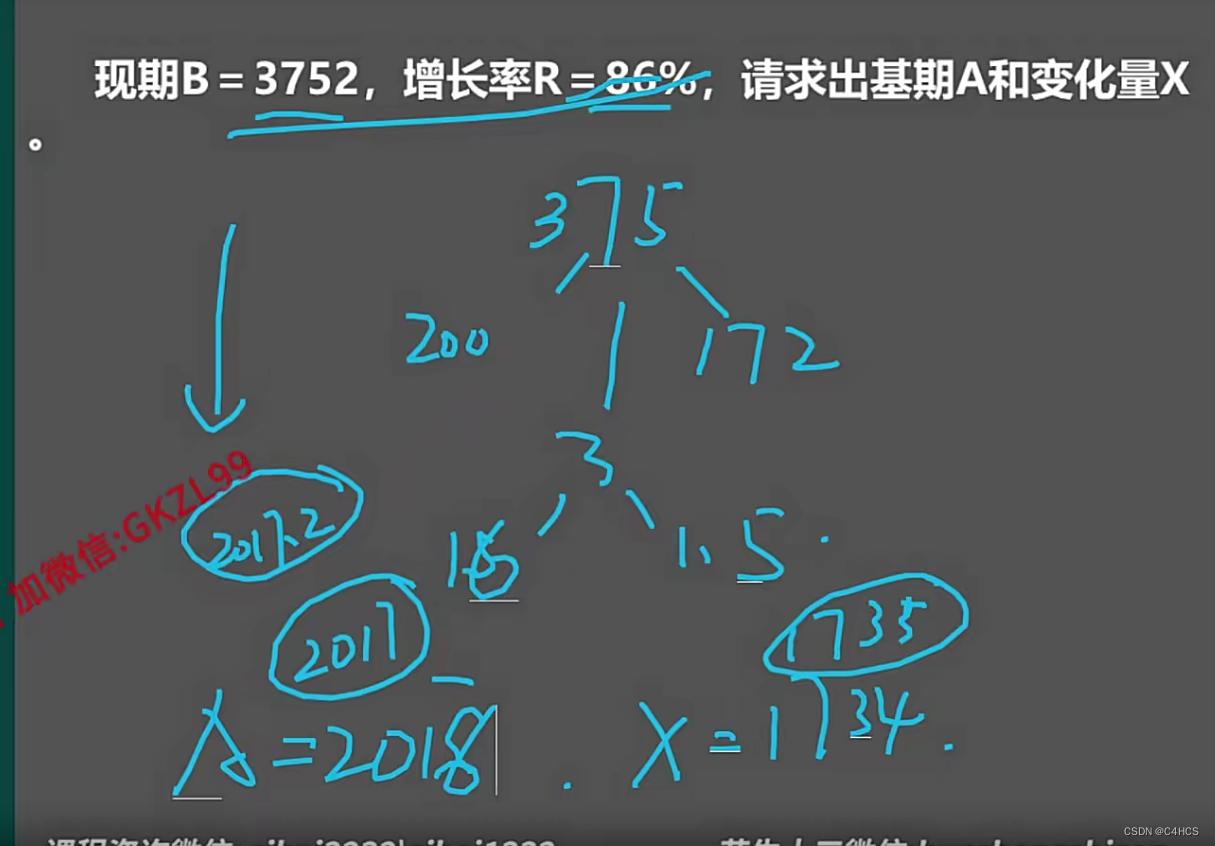 现期B=3752，增长率R=86%，请求出基期A和变化量X
。
375
200
172
3
2017.2
1.5
2017
1735
A=2018
X=1734.
加微信:GKZL99
CSDN @C4HCS